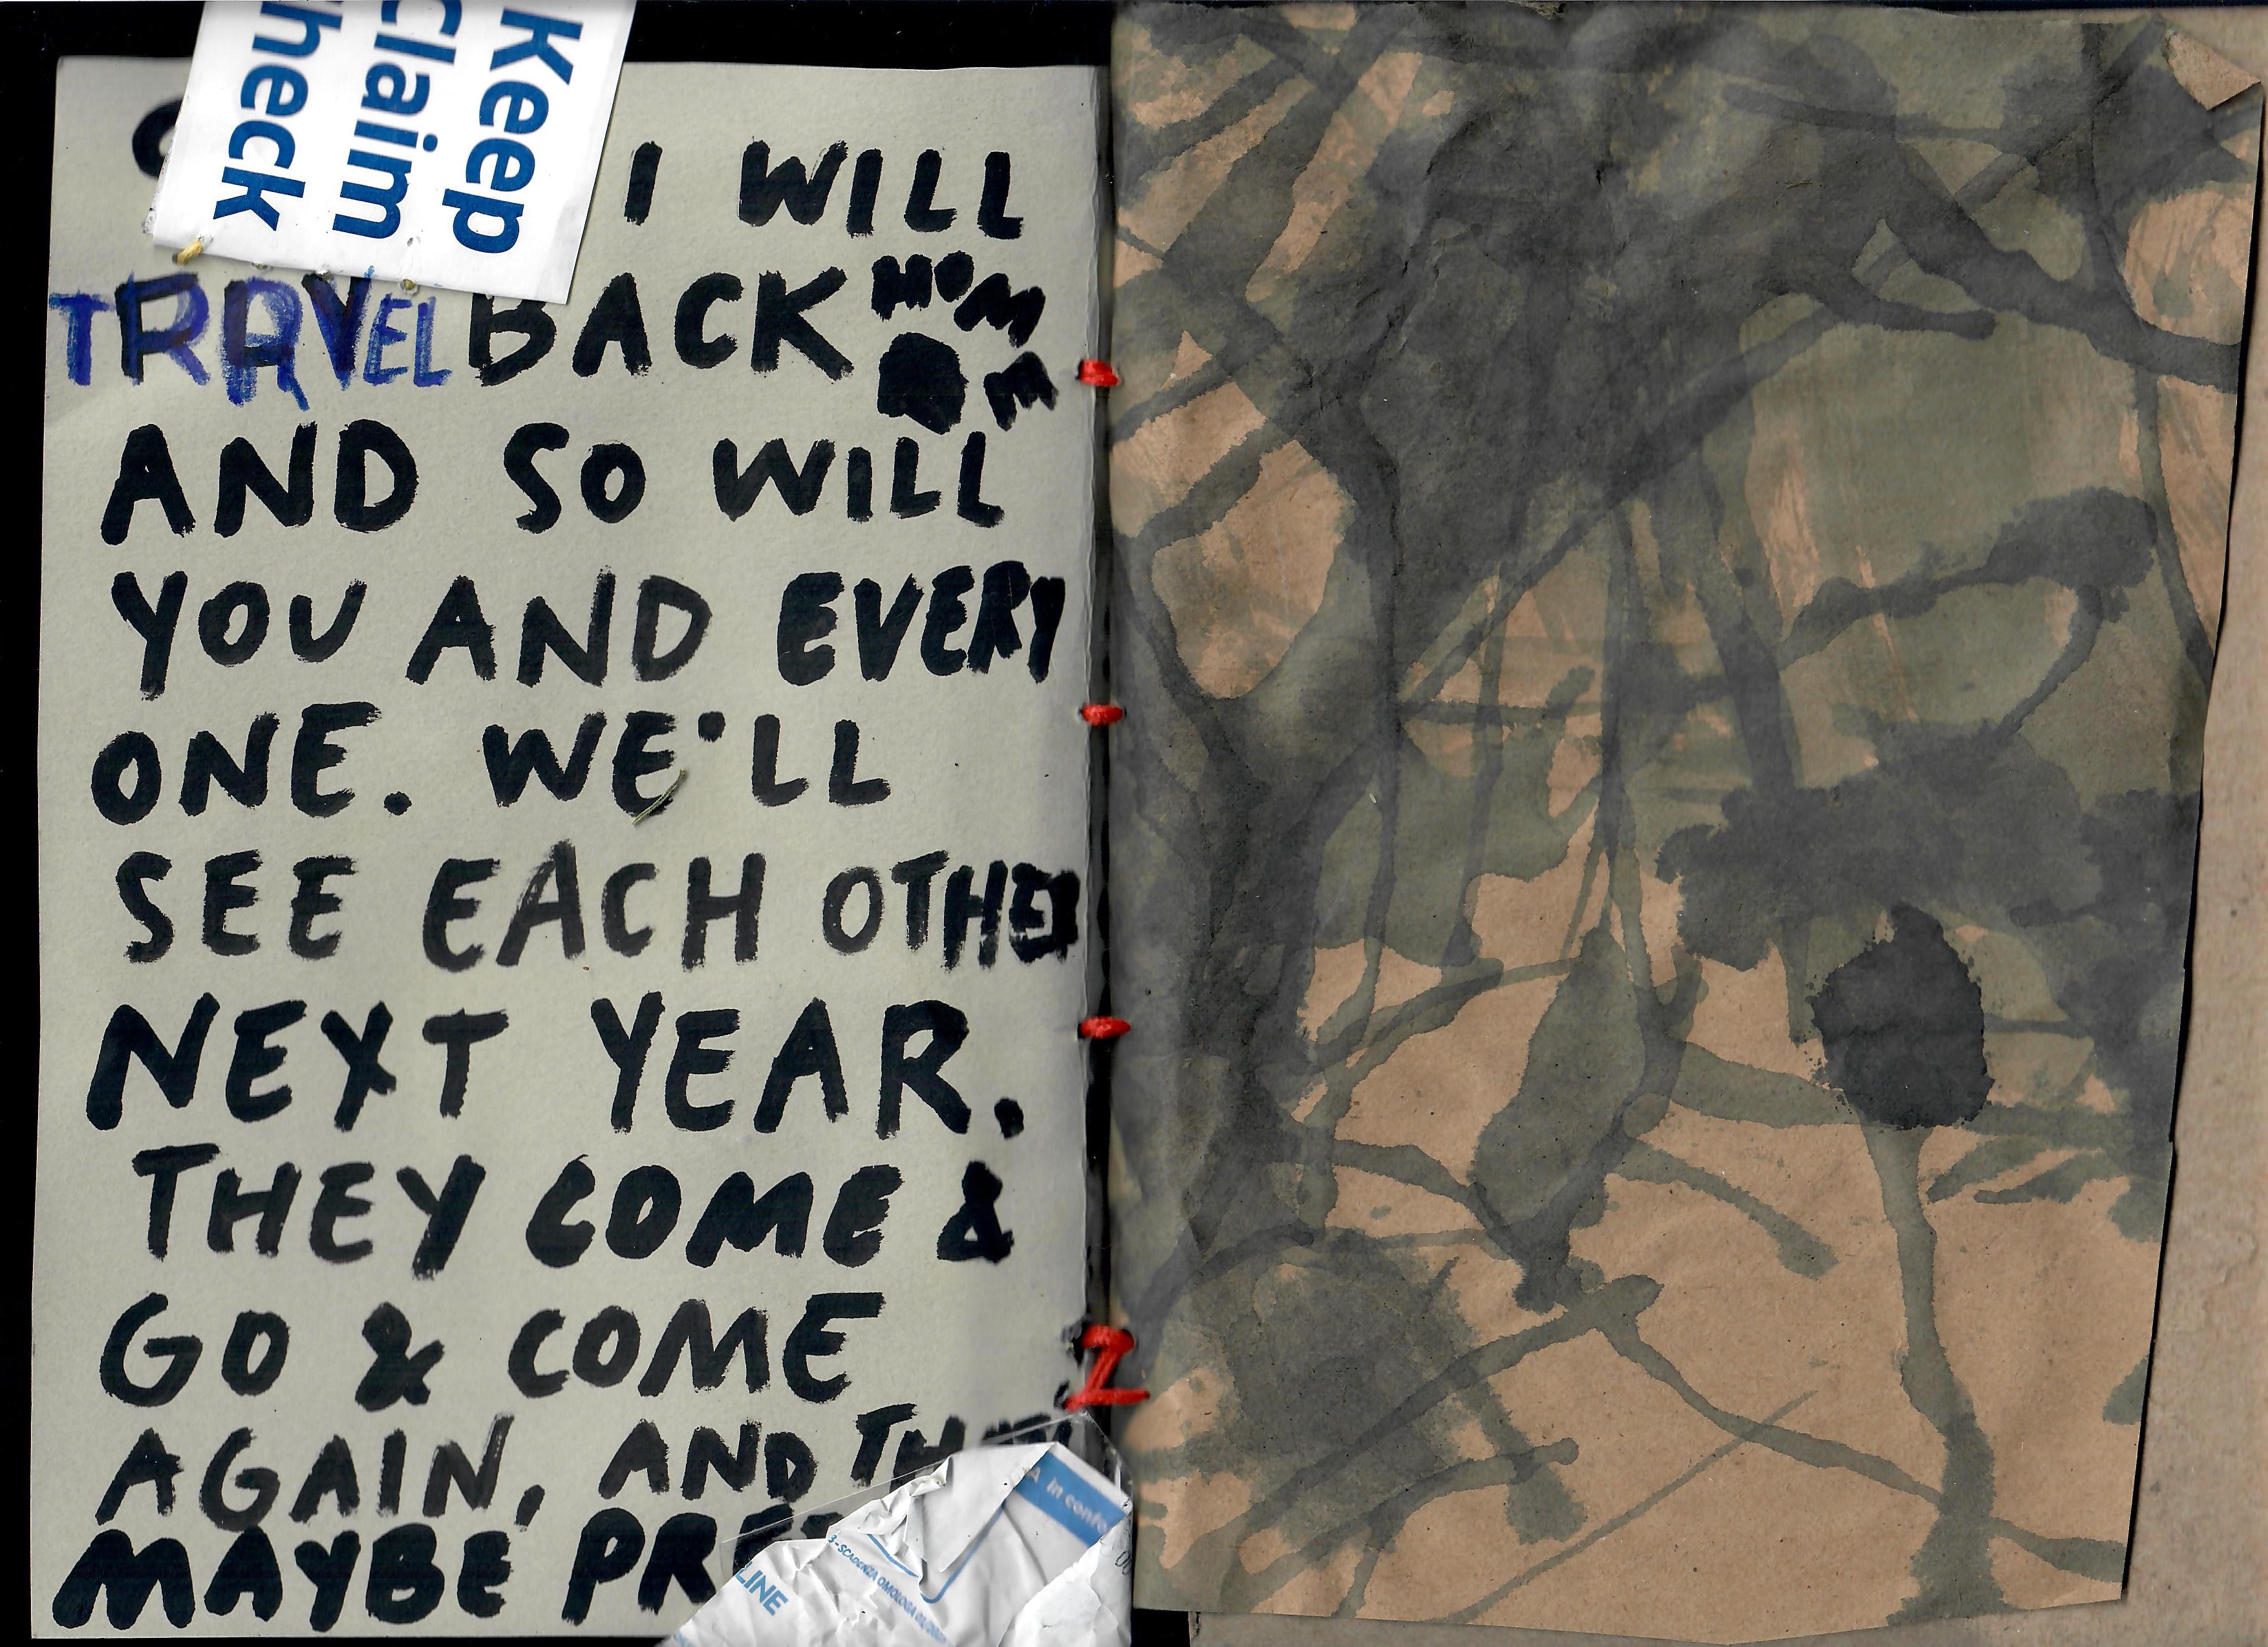 Keep
claim
heck
I WILL
TRAVEL BACK HOME
AND SO WILL
YOU AND EVERY
ONE. WE'LL
SEE EACH OTHER
NEXT YEAR.
THEY COME &
GO & COME
AGAIN, AND
MAYBE
A in confo
SCADENZA OMOLOGA
LINE